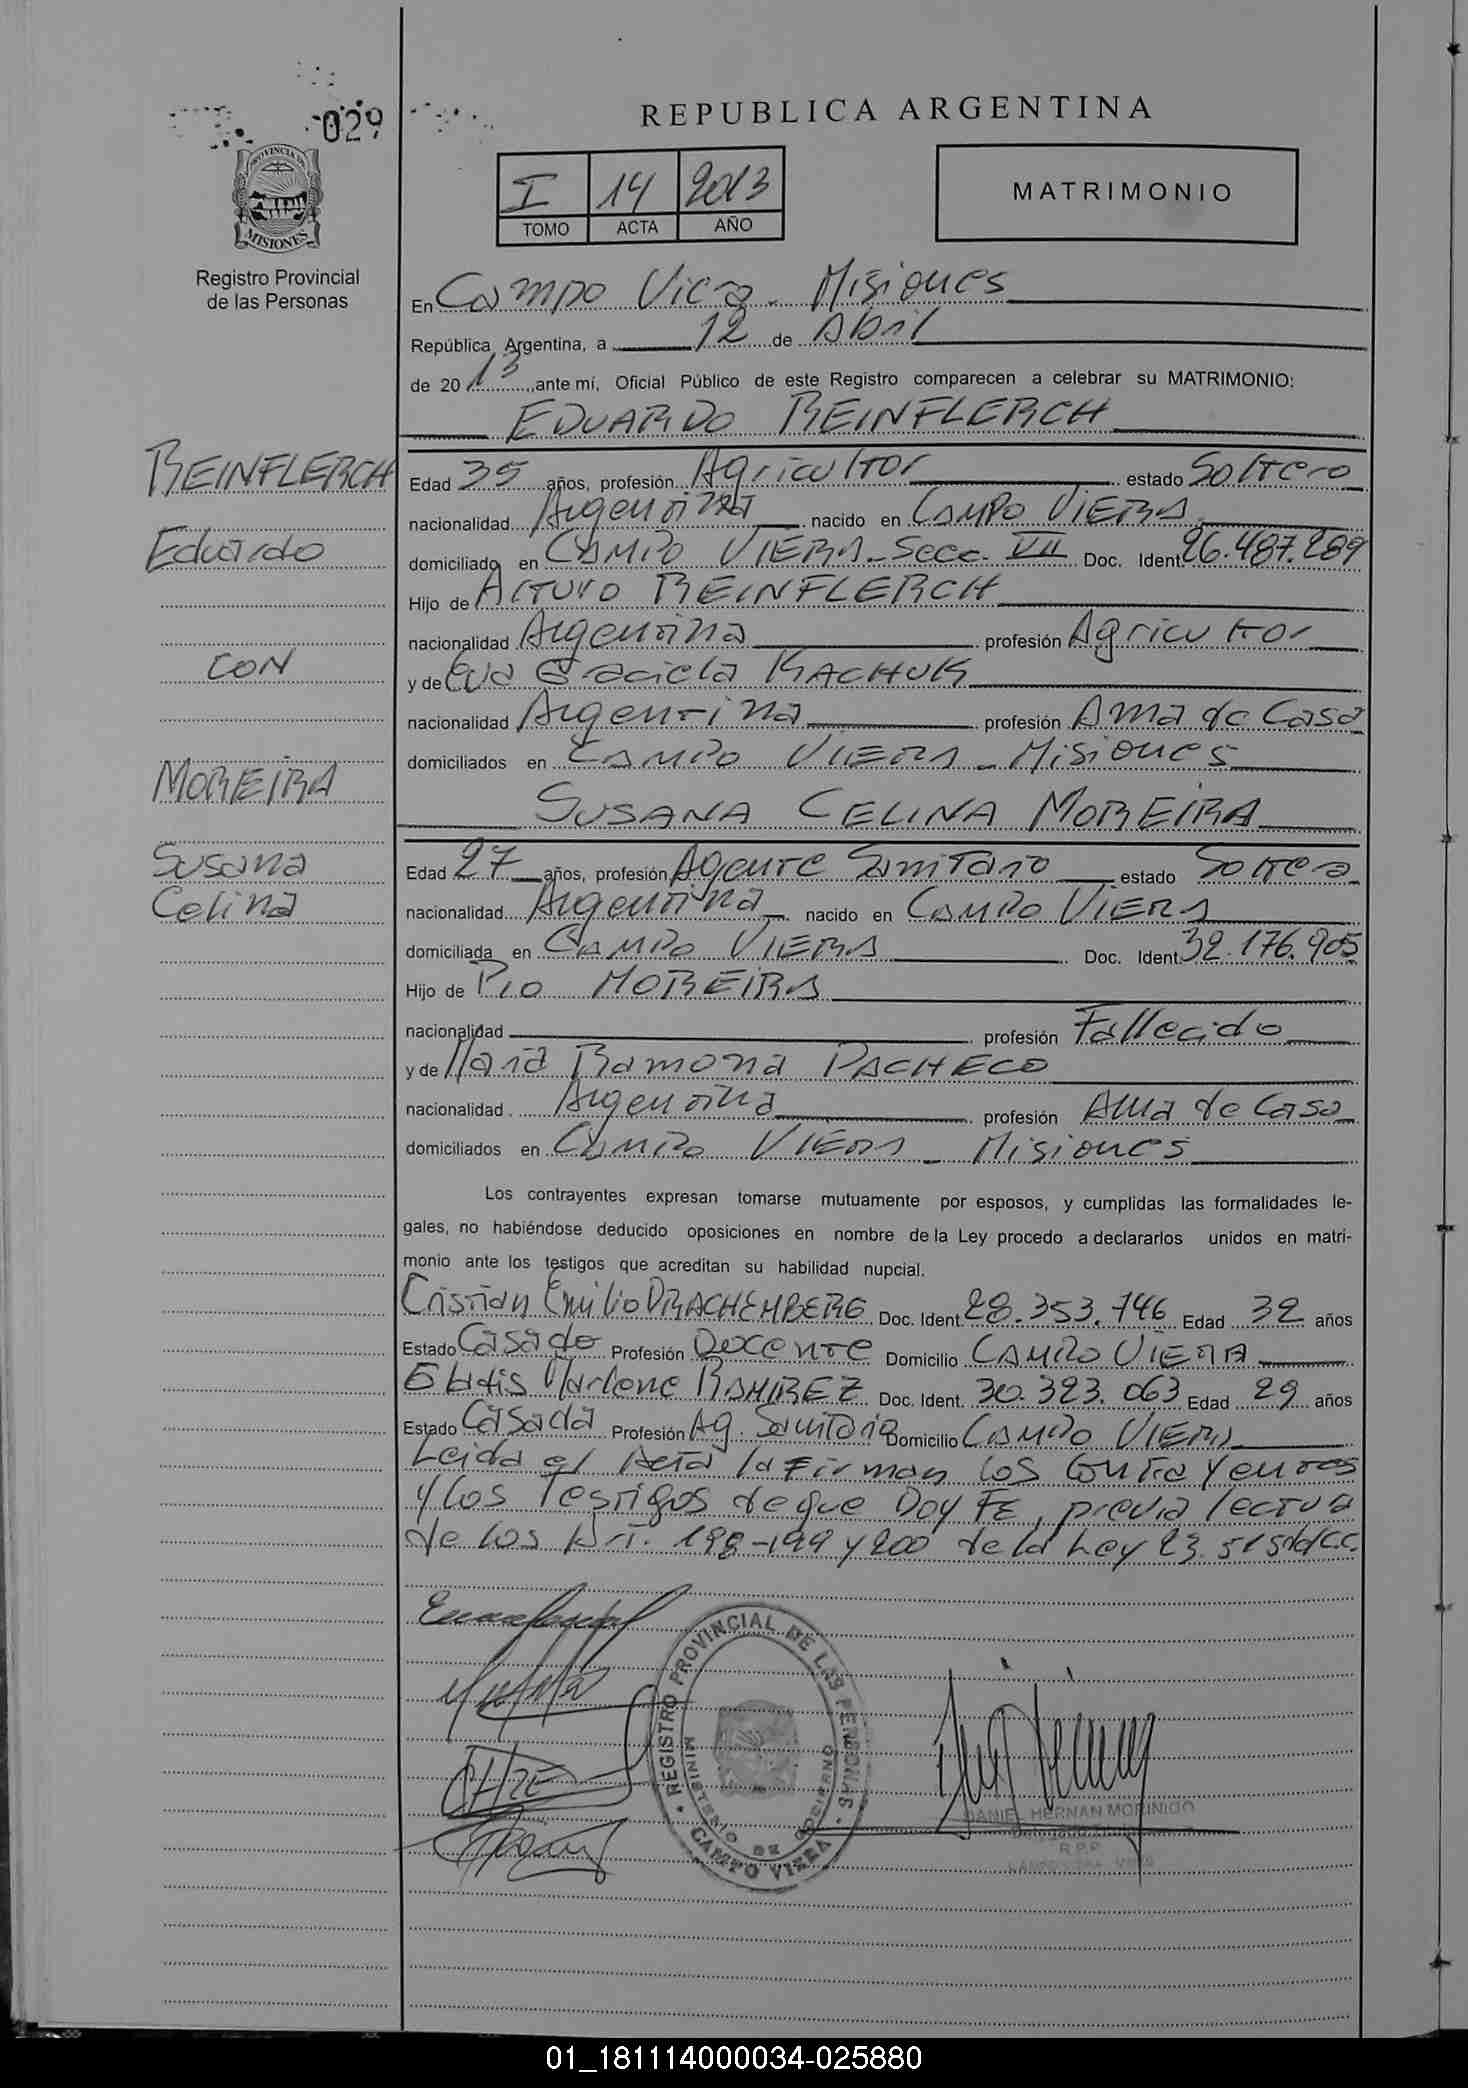 029
PROVINCIA DE
MISIONES
Registro Provincial
de las Personas
REPUBLICA ARGENTINA
I 14 2013
TOMO ACTA AÑO
MATRIMONIO
En Campo Viera - Misiones
República Argentina, a 12 de Abril
de 2013, ante mí, Oficial Público de este Registro comparecen a celebrar su MATRIMONIO:
EDUARDO REINFLERCH
REINFLERCH
Eduardo
CON
MOREIRA
Susana
Celina
Edad 35 años, profesión Agricultor estado Soltero
nacionalidad Argentina nacido en CAMPO VIERA
domiciliado en CAMPO VIERA - Secc. VII Doc. Ident. 26.487.289
Hijo de Arturo REINFLERCH
nacionalidad Argentina profesión Agricultor
y de Eva Graciela KACHUK
nacionalidad Argentina profesión Ama de Casa
domiciliados en CAMPO VIERA - Misiones
SUSANA CELINA MOREIRA
Edad 27 años, profesión Agente Sanitario estado Soltera
nacionalidad Argentina nacido en CAMPO VIERA
domiciliada en CAMPO VIERA Doc. Ident. 32.176.905
Hijo de Pio MOREIRA
nacionalidad profesión Fallecido
y de María Ramona PACHECO
nacionalidad Argentina profesión Ama de Casa
domiciliados en CAMPO VIERA - Misiones
Los contrayentes expresan tomarse mutuamente por esposos, y cumplidas las formalidades le-
gales, no habiéndose deducido oposiciones en nombre de la Ley procedo a declararlos unidos en matri-
monio ante los testigos que acreditan su habilidad nupcial.
Cristian Emilio DRACHEMBERG Doc. Ident. 28.353.746 Edad 32 años
Estado Casado Profesión Docente Domicilio CAMPO VIERA
Gladis Marlene RAMIREZ Doc. Ident. 30.323.063 Edad 29 años
Estado Casada Profesión Ag. Sanitaria Domicilio CAMPO VIERA
Leida el Acta la Firman los Contrayentes
y los Testigos de que Doy FE, previa lectura
de los Art. 198-199 y 200 de la Ley 23.515 del C.C.
REGISTRO PROVINCIAL DE LAS PERSONAS
MINISTERIO DE GOBIERNO
CAMPO VIERA
DANIEL HERNAN MORINIGO
R.P.P.
01_181114000034-025880